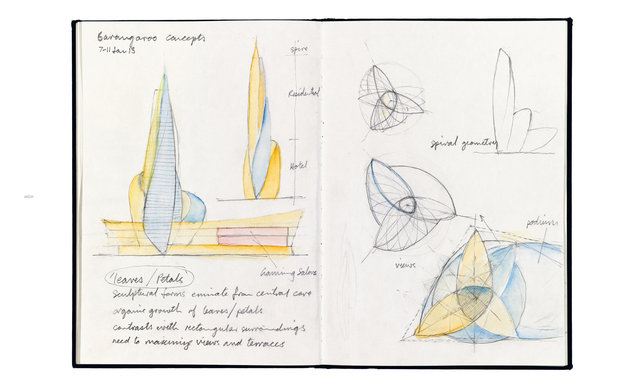 Barangaroo concepts
7-11 Jan 13
spire
Residential
Hotel
Gaming Salons
leaves / Petals
sculptural forms eminate from central core
organic growth of leaves/petals
contrasts with rectangular surroundings
need to maximise views and terraces
spiral geometry
views
podium